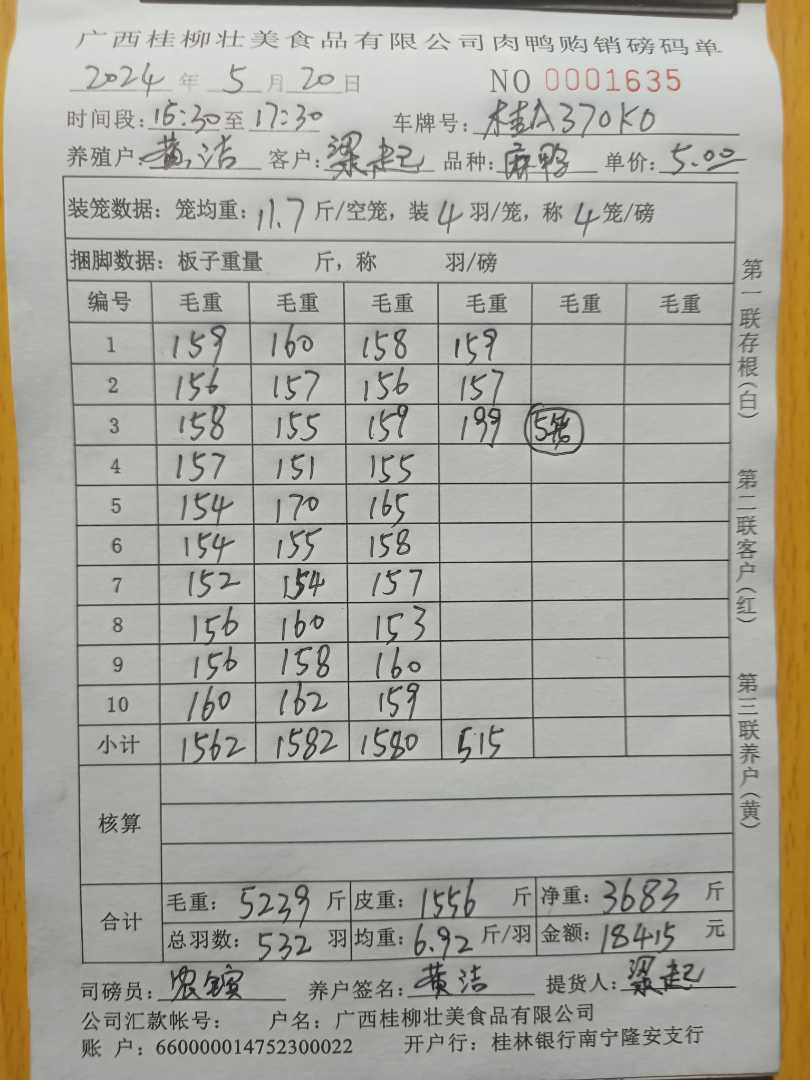 广西桂柳壮美食品有限公司肉鸭购销磅码单
2024 年 5 月 20 日 NO 0001635
时间段: 15:30 至 17:30 车牌号: 桂A370K0
养殖户: 黄洁 客户: 梁起 品种: 麻鸭 单价: 5.00
装笼数据: 笼均重: 11.7 斤/空笼, 装 4 羽/笼, 称 4 笼/磅
捆脚数据: 板子重量 斤, 称 羽/磅
编号 毛重 毛重 毛重 毛重 毛重 毛重
1 159 160 158 159
2 156 157 156 157
3 158 155 159 199 5笼
4 157 151 155
5 154 170 165
6 154 155 158
7 152 154 157
8 156 160 153
9 156 158 160
10 160 162 159
小计 1562 1582 1580 515
核算
合计
毛重: 5239 斤 皮重: 1556 斤 净重: 3683 斤
总羽数: 532 羽 均重: 6.92 斤/羽 金额: 18415 元
司磅员: 农 养户签名: 黄洁 提货人: 梁起
公司汇款帐号: 户名: 广西桂柳壮美食品有限公司
账 户: 660000014752300022 开户行: 桂林银行南宁隆安支行
第一联存根(白)
第二联客户(红)
第三联养户(黄)